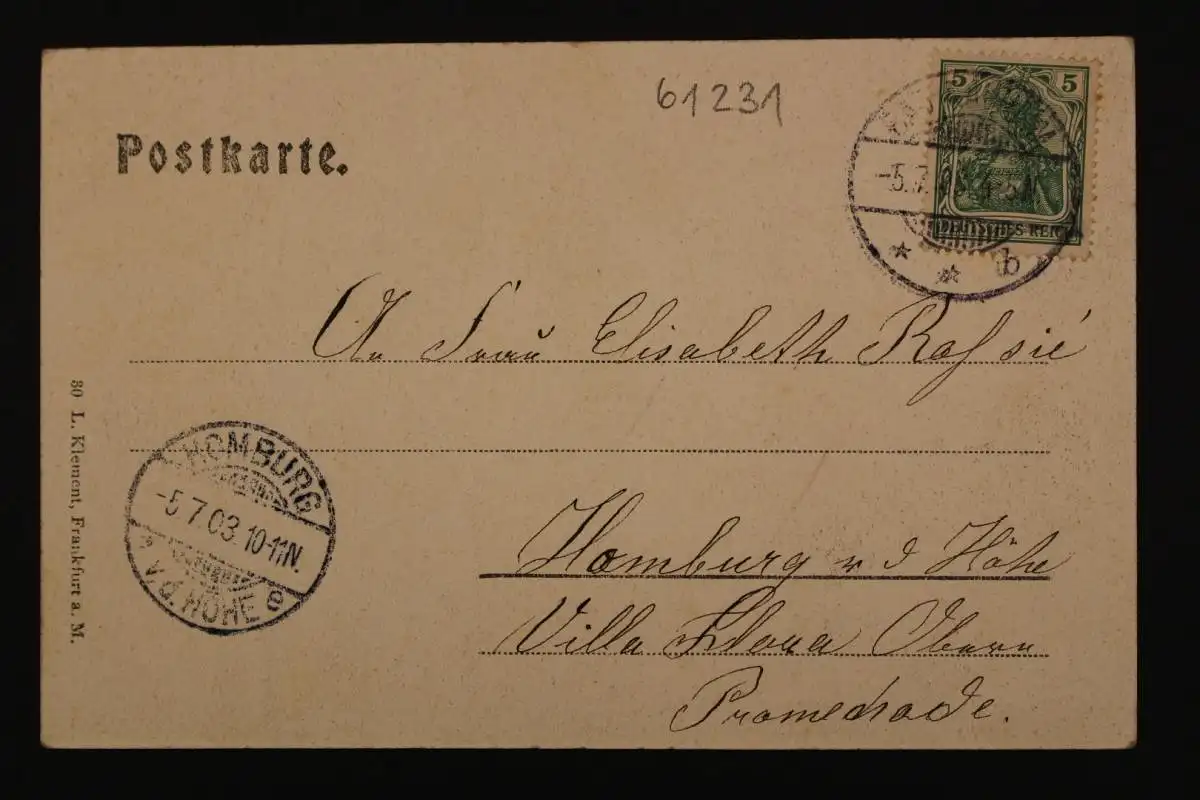 61231
5 5
DEUTSCHES REICH
-5.7.03
b
Postkarte.
An Frau Elisabeth
HOMBURG
-5.7.03. 10-11N.
v.d. HÖHE e
Homburg v d Höhe
Villa Flora Obere
Promenade.
30 L. Klement, Frankfurt a. M.